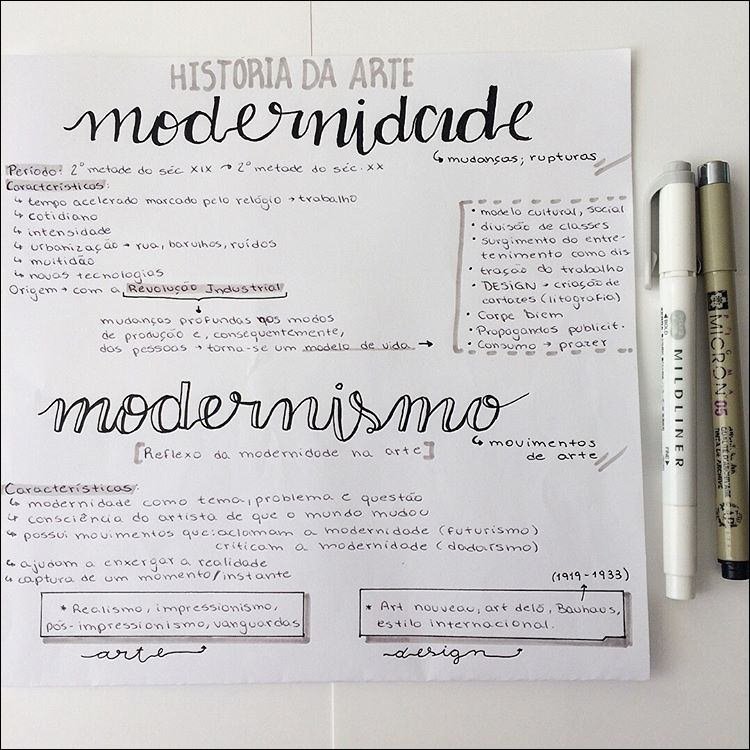 HISTÓRIA DA ARTE
modernidade
↳ mudanças; rupturas
Período: 2º metade do séc XIX → 2º metade do séc. XX
Características:
↳ tempo acelerado marcado pelo relógio → trabalho
↳ cotidiano
↳ intensidade
↳ urbanização → rua, barulhos, ruídos
↳ multidão
↳ novas tecnologias
Origem → com a Revolução Industrial
mudanças profundas nos modos
de produção e, consequentemente,
das pessoas → torna-se um modelo de vida →
• modelo cultural, social
• divisão de classes
• surgimento do entre-
tenimento como dis
• tração do trabalho
• DESIGN → criação de
cartazes (litografia)
• Carpe Diem
• Propagandas publicit.
• Consumo → prazer
modernismo
[Reflexo da modernidade na arte]
↳ movimentos
de arte
Características:
↳ modernidade como tema, problema e questão
↳ consciência do artista de que o mundo mudou
↳ possui movimentos que: aclamam a modernidade (futurismo)
criticam a modernidade (dadaísmo)
↳ ajudam a enxergar a realidade
↳ captura de um momento/instante
* Realismo, impressionismo,
pós-impressionismo, vanguardas
arte
(1919-1933)
* Art nouveau, art delô, Bauhaus,
estilo internacional.
design
BOLD
MILDLINER
FINE
MICRON 05